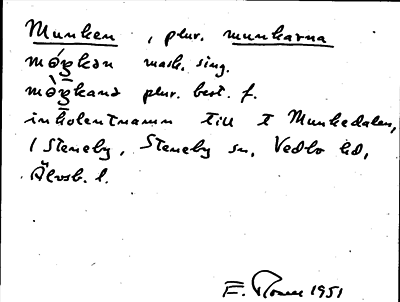 Munken, plur. munkarna
móŋkən mask. sing.
mòŋkana plur. best. f.
inkolentnamn till t Munkedalen,
i Steneby, Steneby sn, Vedbo hd,
Älvsb. l.
E. 1951